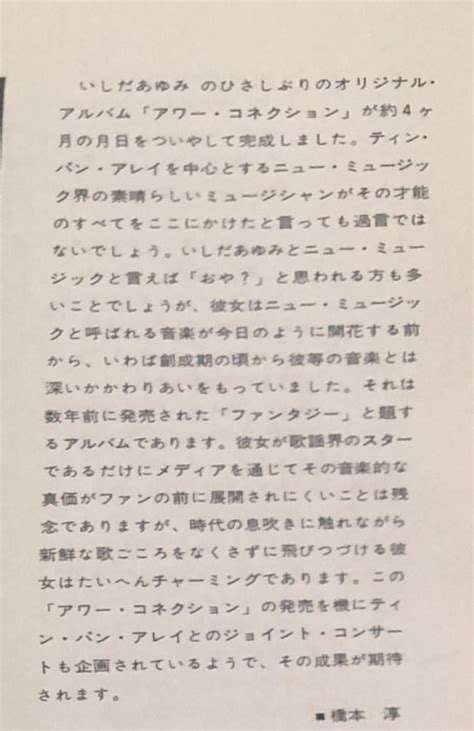 いしだあゆみ のひさしぶりのオリジナル・
アルバム「アワー・コネクション」が約4ヶ
月の月日をついやして完成しました。ティン・
パン・アレイを中心とするニュー・ミュージッ
ク界の素晴らしいミュージシャンがその才能
のすべてをここにかけたと言っても過言では
ないでしょう。いしだあゆみとニュー・ミュー
ジックと言えば「おや？」と思われる方も多
いことでしょうが、彼女はニュー・ミュージッ
クと呼ばれる音楽が今日のように開花する前
から、いわば創成期の頃から彼等の音楽とは
深いかかわりあいをもっていました。それは
数年前に発売された「ファンタジー」と題す
るアルバムであります。彼女が歌謡界のスター
であるだけにメディアを通じてその音楽的な
真価がファンの前に展開されにくいことは残
念でありますが、時代の息吹きに触れながら
新鮮な歌ごころをなくさずに飛びつづける彼
女はたいへんチャーミングであります。この
「アワー・コネクション」の発売を機にティ
ン・パン・アレイとのジョイント・コンサー
トも企画されているようで、その成果が期待
されます。
■橋本 淳